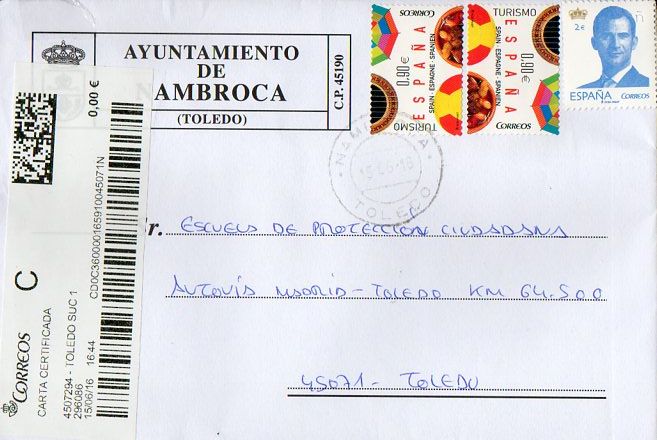 AYUNTAMIENTO
DE
NAMBROCA
(TOLEDO)
C.P. 45190
CORREOS
ESPAÑA
SPAIN - ESPAGNE - SPANIEN
0,90€
TURISMO
TURISMO
ESPAÑA
SPAIN - ESPAGNE - SPANIEN
0,90€
CORREOS
2€
ESPAÑA
CORREOS
NAMBROCA
15-06-16
TOLEDO
0,00 €
CD0C3600001659100450​71N
C
CORREOS
CARTA CERTIFICADA
4507294 - TOLEDO SUC 1
296086
15/06/16 16:44
Sr. ESCUELA DE PROTECCIÓN CIUDADANA
AUTOVÍA MADRID - TOLEDO KM 64.500
45071 - TOLEDO